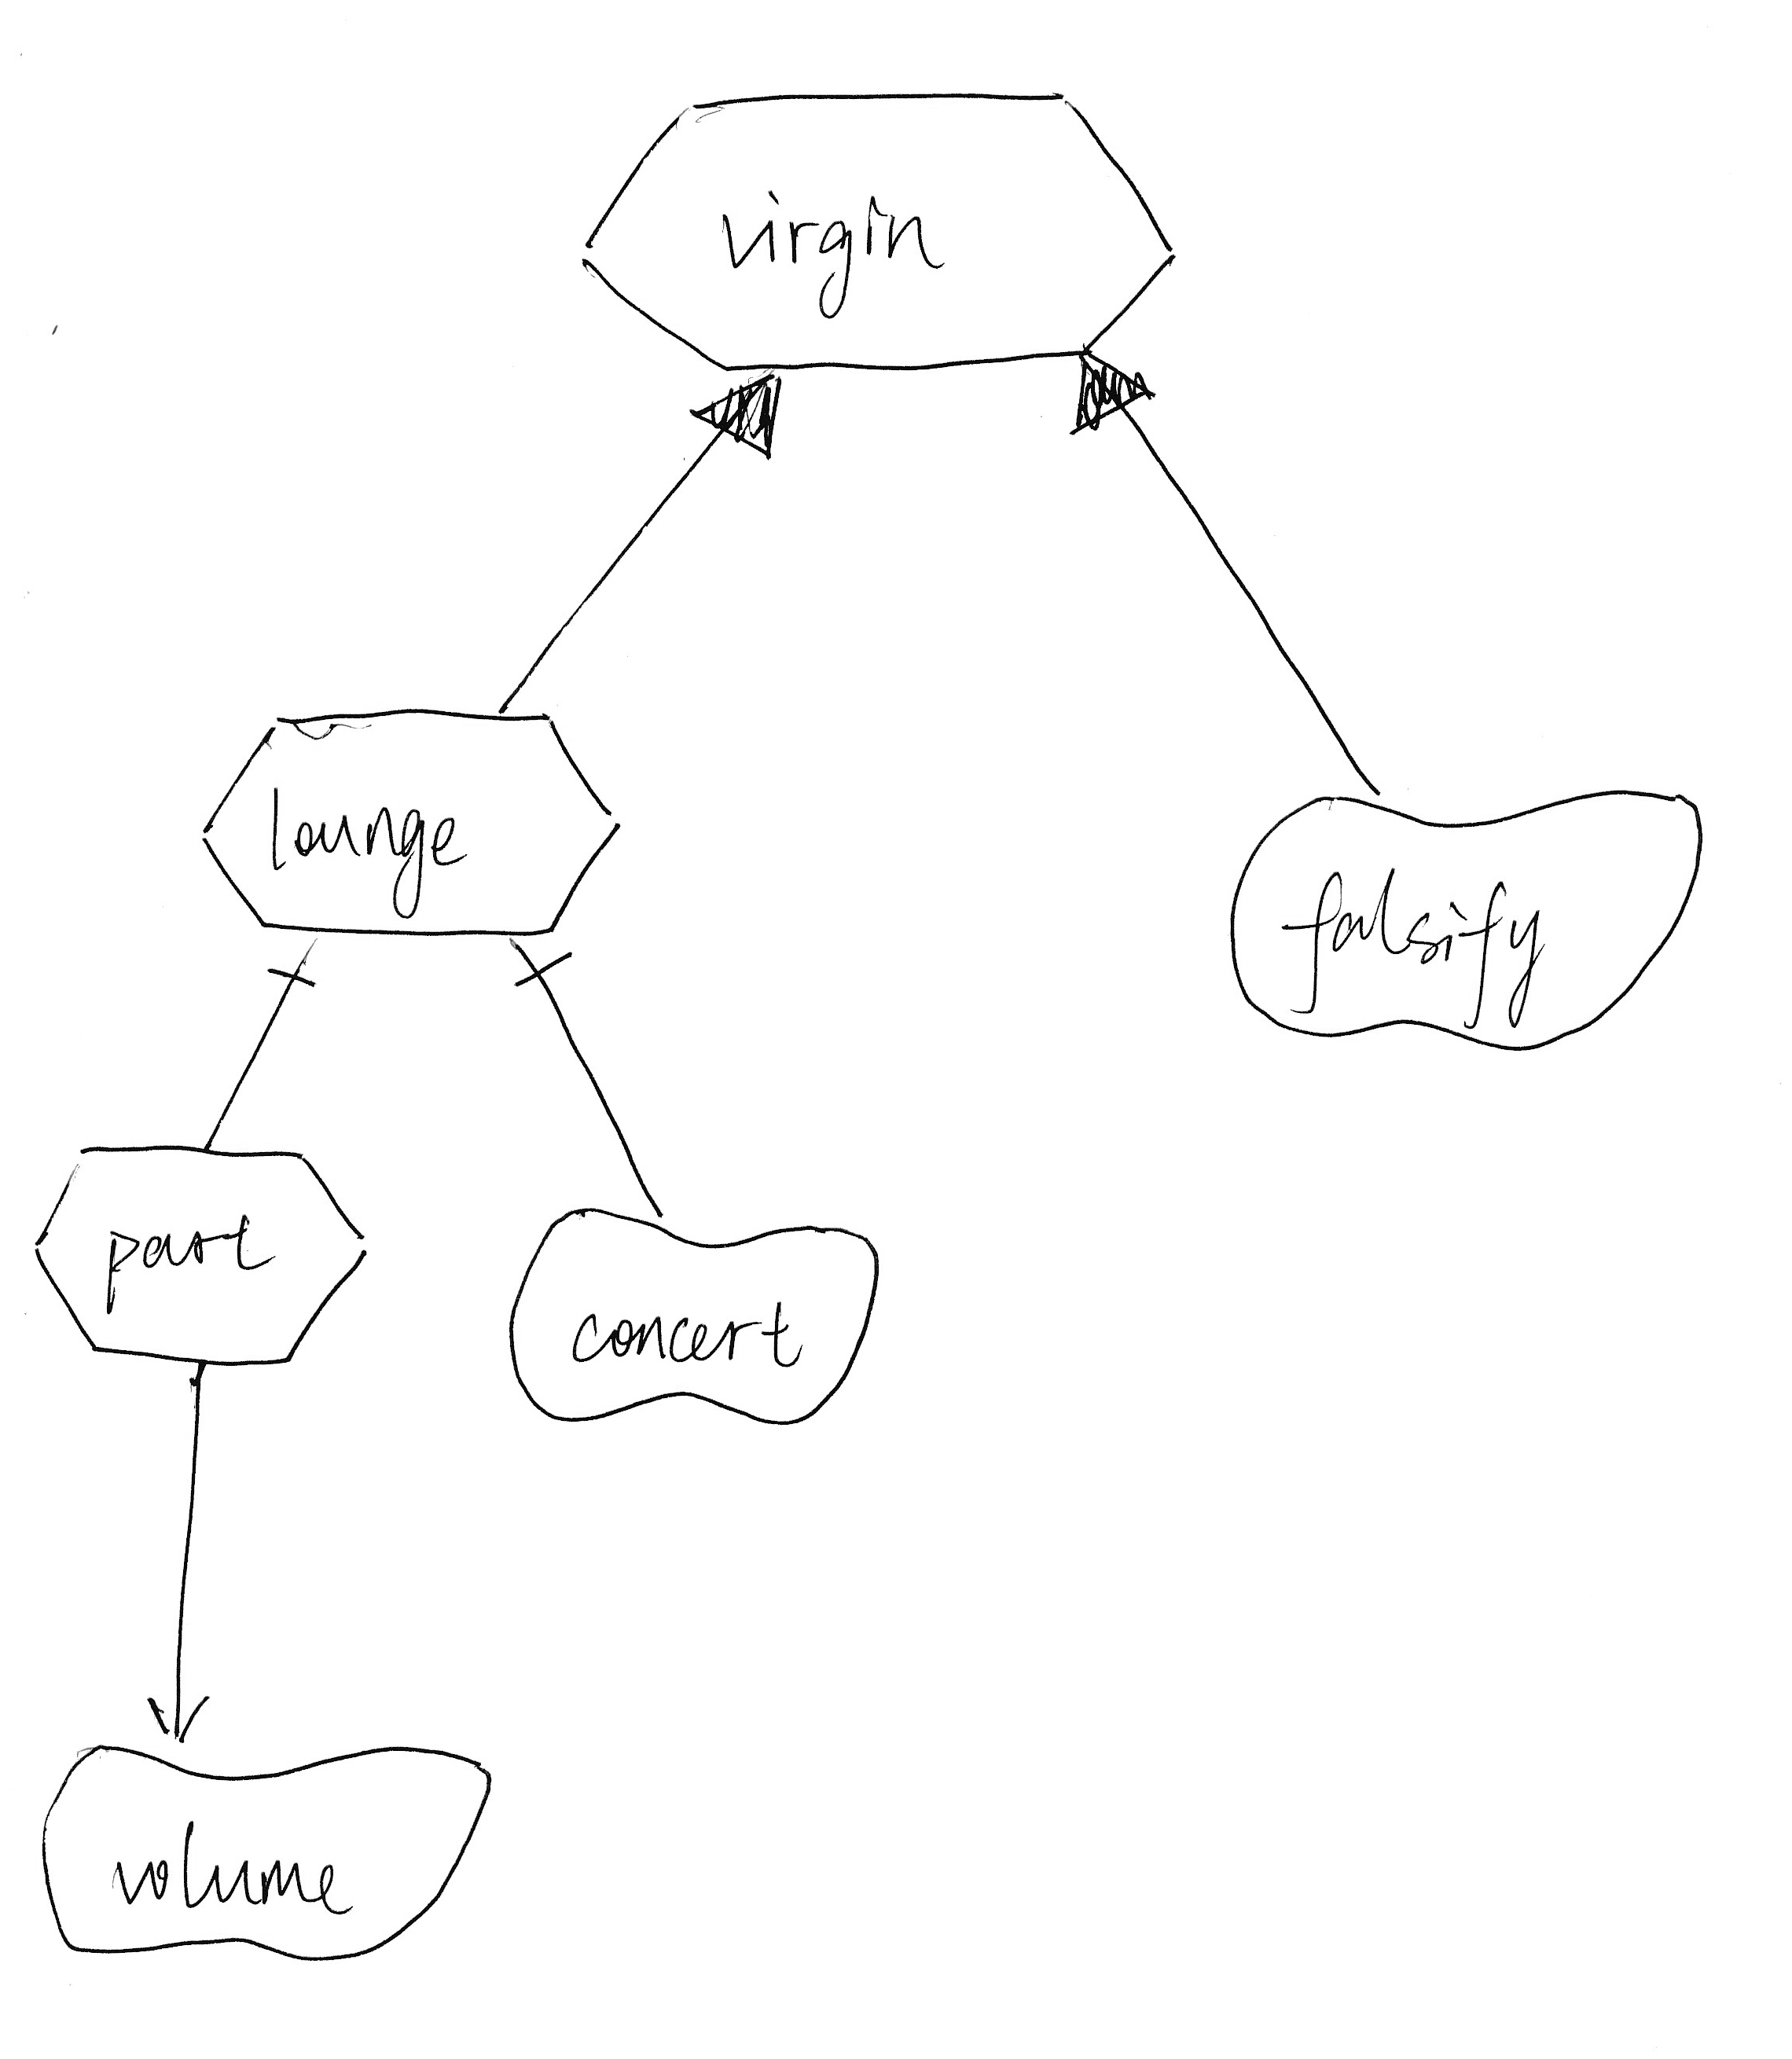 virgin
lounge
falsify
part
concert
volume